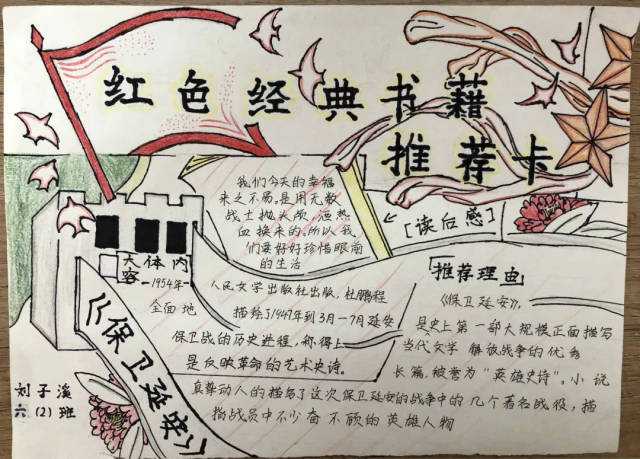 红色经典书籍
推荐卡
我们今天的幸福
来之不易。是用无数
战士抛头颅,洒热
血换来的。所以我
们要好好珍惜眼前
的生活
[读后感]
大体内
容
1954年
全面地
人民文学出版社出版,杜鹏程
描绘了1947年到3月-7月延安
保卫战的历史进程,称得上
是反映革命的艺术史诗。
《保卫延安》
推荐理由
《保卫延安》,
是史上第一部大规模正面描写
当代文学 解放战争的优秀
长篇,被誉为“英雄史诗”。小说
真尊动人的描写了这次保卫延安的战争中的几个著名战役,描
指战员中不少奋不顾的英雄人物
刘子溪
六(2)班